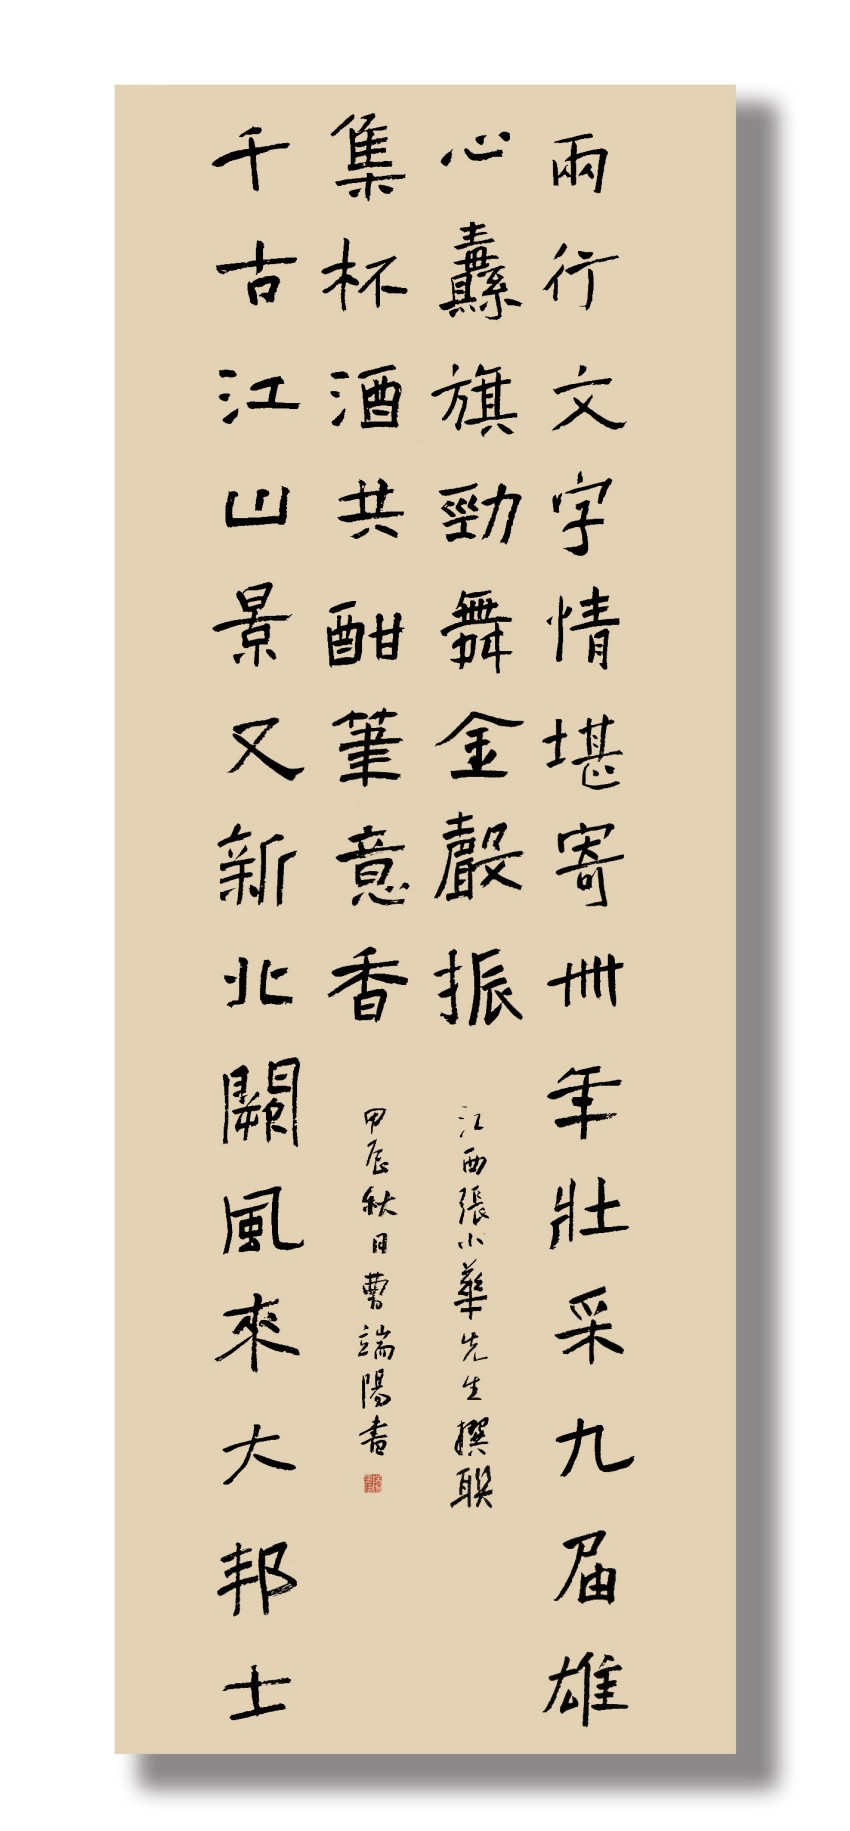 兩行文字情堪寄卌年壯采九届雄
心纛旗勁舞金聲振
江西張小華先生撰聯
千古江山景又新北闕風來大邦士
集杯酒共酣筆意香
甲辰秋日曹端陽書